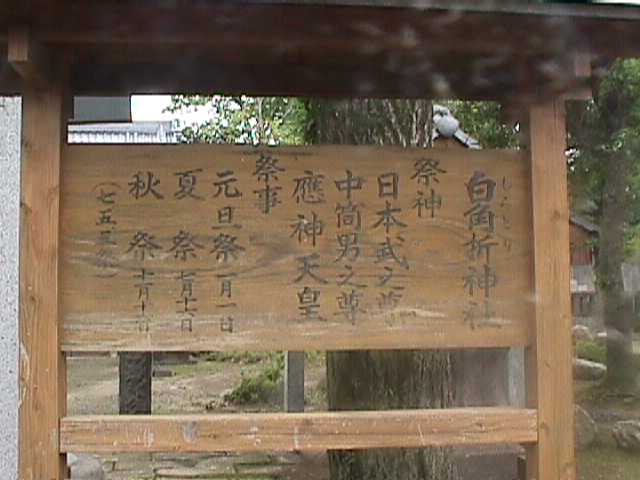 白角折神社
祭神
日本武之尊
中筒男之尊
應神天皇
祭事
元旦祭 一月一日
夏祭 七月十六日
秋祭
(七五三祭)